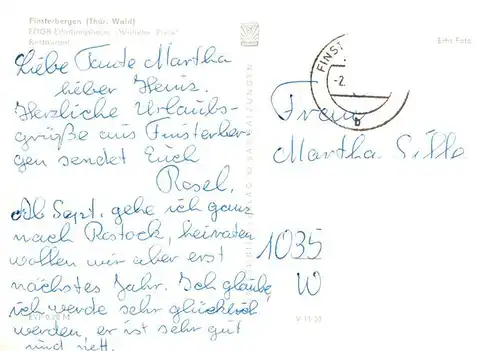 Finsterbergen (Thür. Wald)
FDGB-Erholungsheim "Wilhelm Pieck"
Restaurant
Echt Foto
Liebe Tante Martha
lieber Heinz.
Herzliche Urlaubs-
grüße aus Finsterber-
gen sendet Euch
Rosel.
Ab Sept. gehe ich ganz
nach Rostock, heiraten
wollen wir aber erst
nächstes Jahr. Ich glaube,
ich werde sehr glücklich
werden, er ist sehr gut
und nett.
FINST
-2.
b
Frau
Martha Sille
1035
W
V 11 50